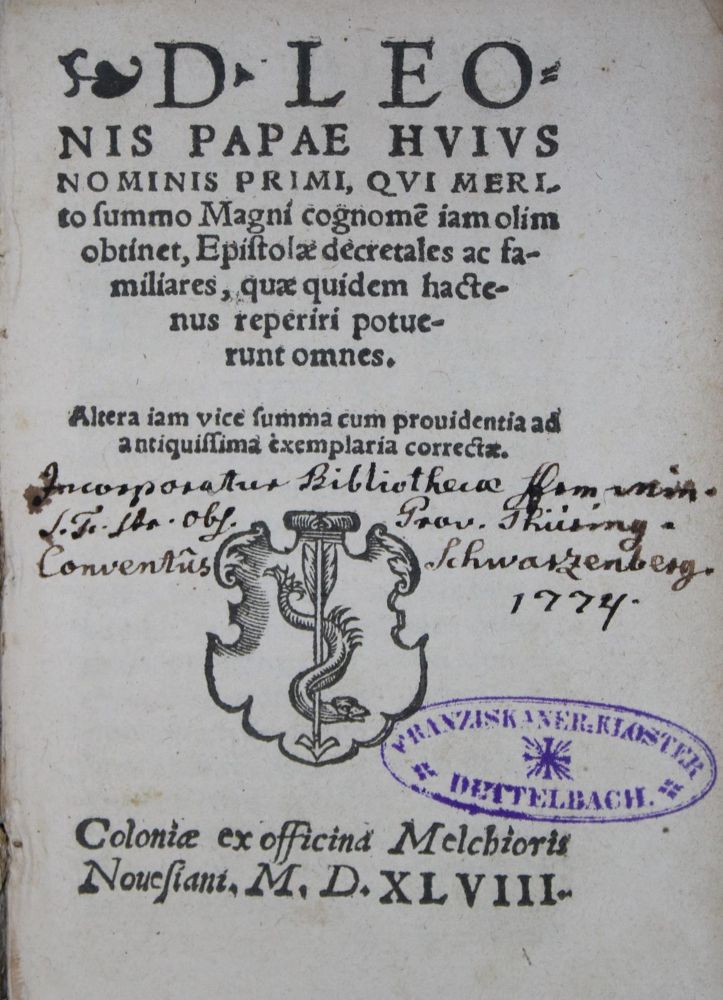 D. LEO-
NIS PAPAE HVIVS
NOMINIS PRIMI, QVI MERI-
to summo Magni cognomē iam olim
obtinet, Epistolæ decretales ac fa-
miliares, quæ quidem hacte-
nus reperiri potue-
runt omnes.
Altera iam vice summa cum prouidentia ad
antiquissima exemplaria correctæ.
Incorporatur Bibliothecæ ffrm min.
S. Fr. str. obs. Prov. Thüring.
Conventûs Schwarzenberg.
1774.
FRANZISKANER-KLOSTER
DETTELBACH.
Coloniæ ex officina Melchioris
Nouesiani. M. D. XLVIII.